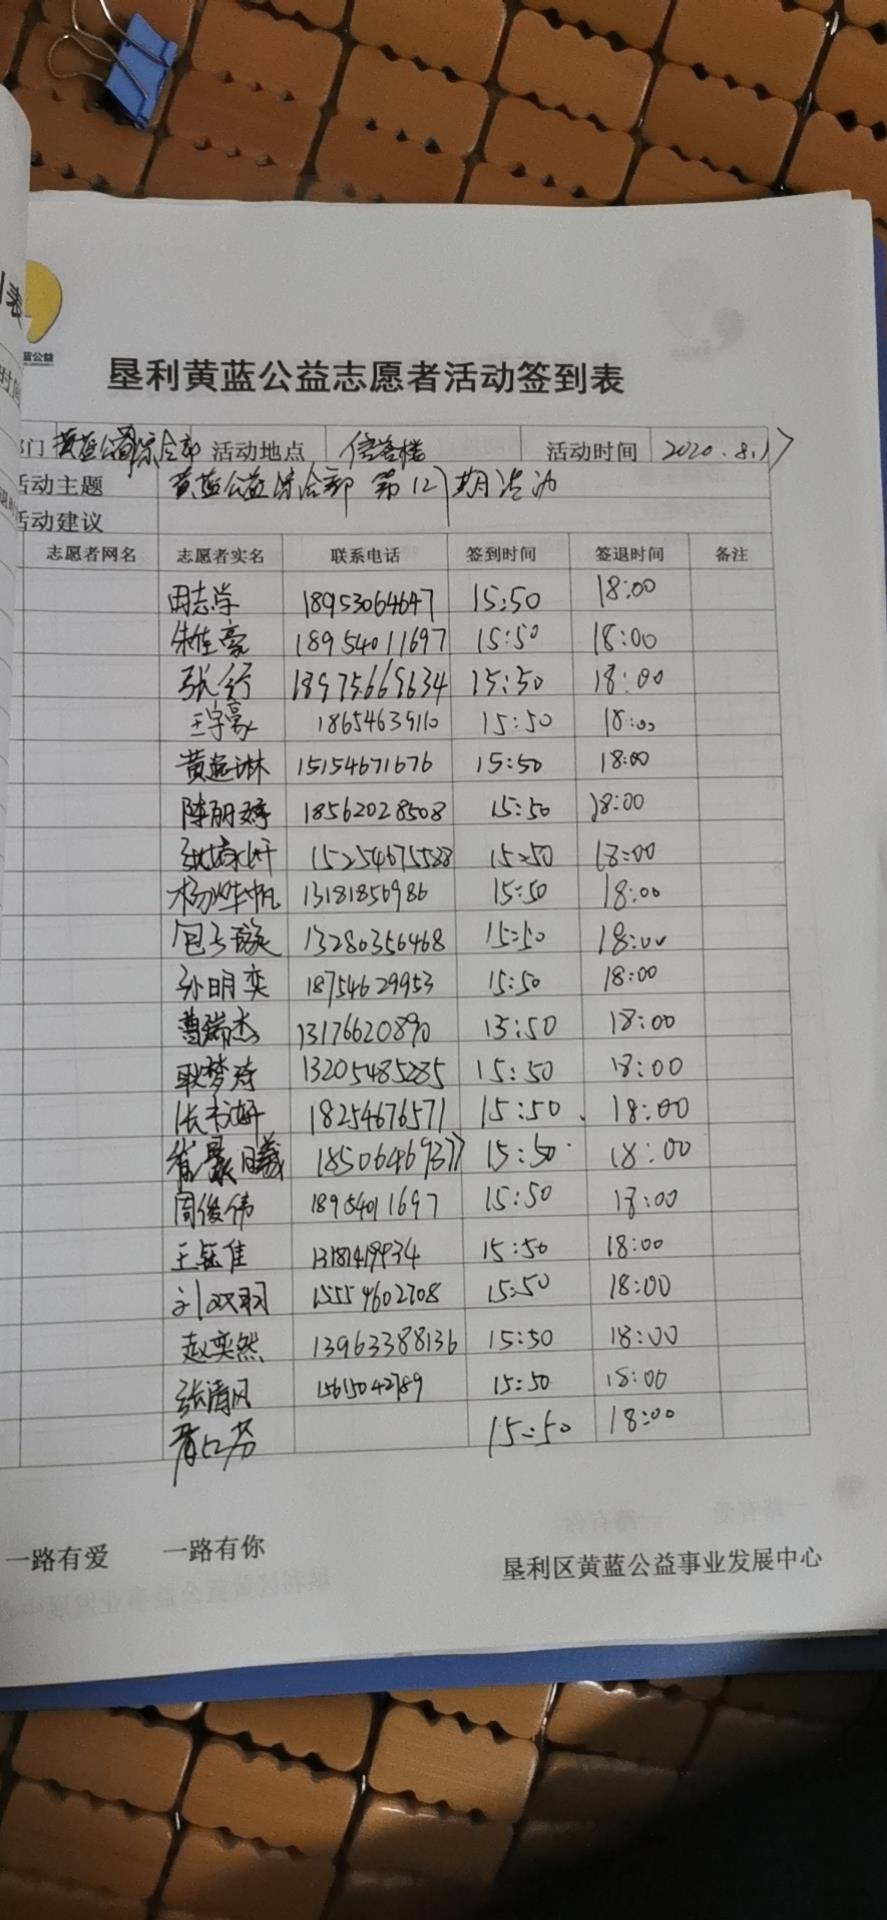 蓝公益
垦利黄蓝公益志愿者活动签到表
部门 黄蓝公益综合部 活动地点 信誉楼 活动时间 2020.8.17
活动主题 黄蓝公益综合部 第127期活动
活动建议
志愿者网名 志愿者实名 联系电话 签到时间 签退时间 备注
田志学 18953064647 15:50 18:00
朱佳豪 18954011697 15:50 18:00
张行 18975669634 15:50 18:00
王宇豪 18654639110 15:50 18:00
黄 琳 15154671676 15:50 18:00
陈丽婷 18562028508 15:50 18:00
15254675528 15:50 18:00
杨 帆 13181856986 15:50 18:00
包子璇 13280356468 15:50 18:00
孙明奕 18754629953 15:50 18:00
曹瑞杰 13176620890 15:50 18:00
耿梦 13205485285 15:50 18:00
张 妤 18254676571 15:50 18:00
曦 18506469377 15:50 18:00
周俊伟 18954011697 15:50 18:00
王钰佳 15:50 18:00
刘双羽 15554602708 15:50 18:00
赵奕然 13963388136 15:50 18:00
张清风 15615042789 15:50 18:00
15:50 18:00
一路有爱 一路有你
垦利区黄蓝公益事业发展中心